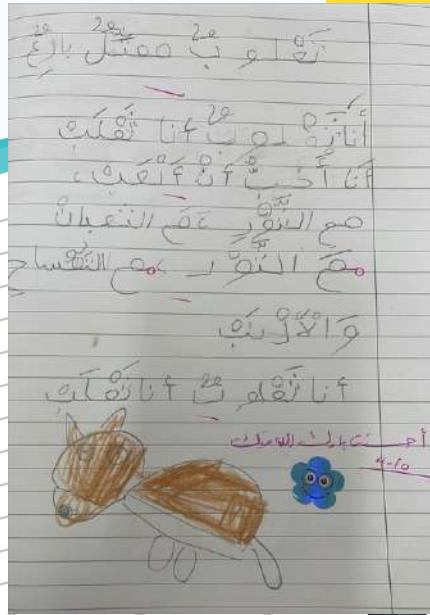 ثَعْلوبٌ ممثلٌ بارِعٌ
أنا ثَعْلوبٌ أنا ثَعْلَبٌ
أَنَا أُحِبُّ أَنْ أَلْعَبَ،
مع الثَّوْرِ ،مَع الثعبانْ
مَعَ النَّوْرِ ،مع التمْساحِ
وَالْأَرْنَبِ
أنا ثَعْلوبٌ أنا ثَعْلَبٌ
أحسنت بارك الله فيك
4-10